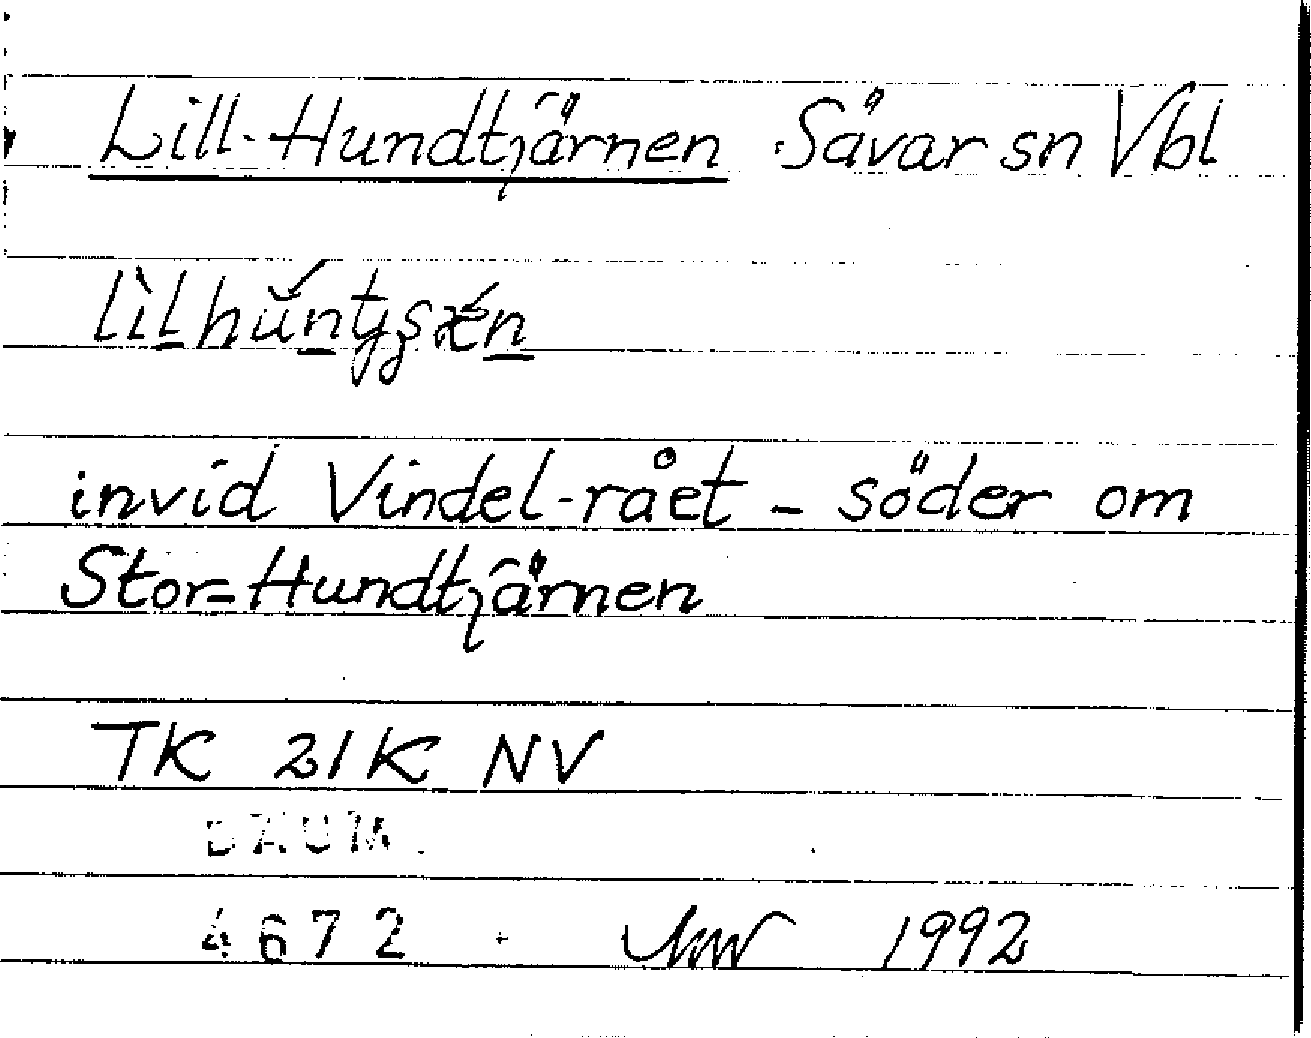 Lill-Hundtjärnen Sävar sn Vbl
invid Vindel-rået - söder om
Stor-Hundtjärnen
TK 21K NV
DAUM
4672 1992